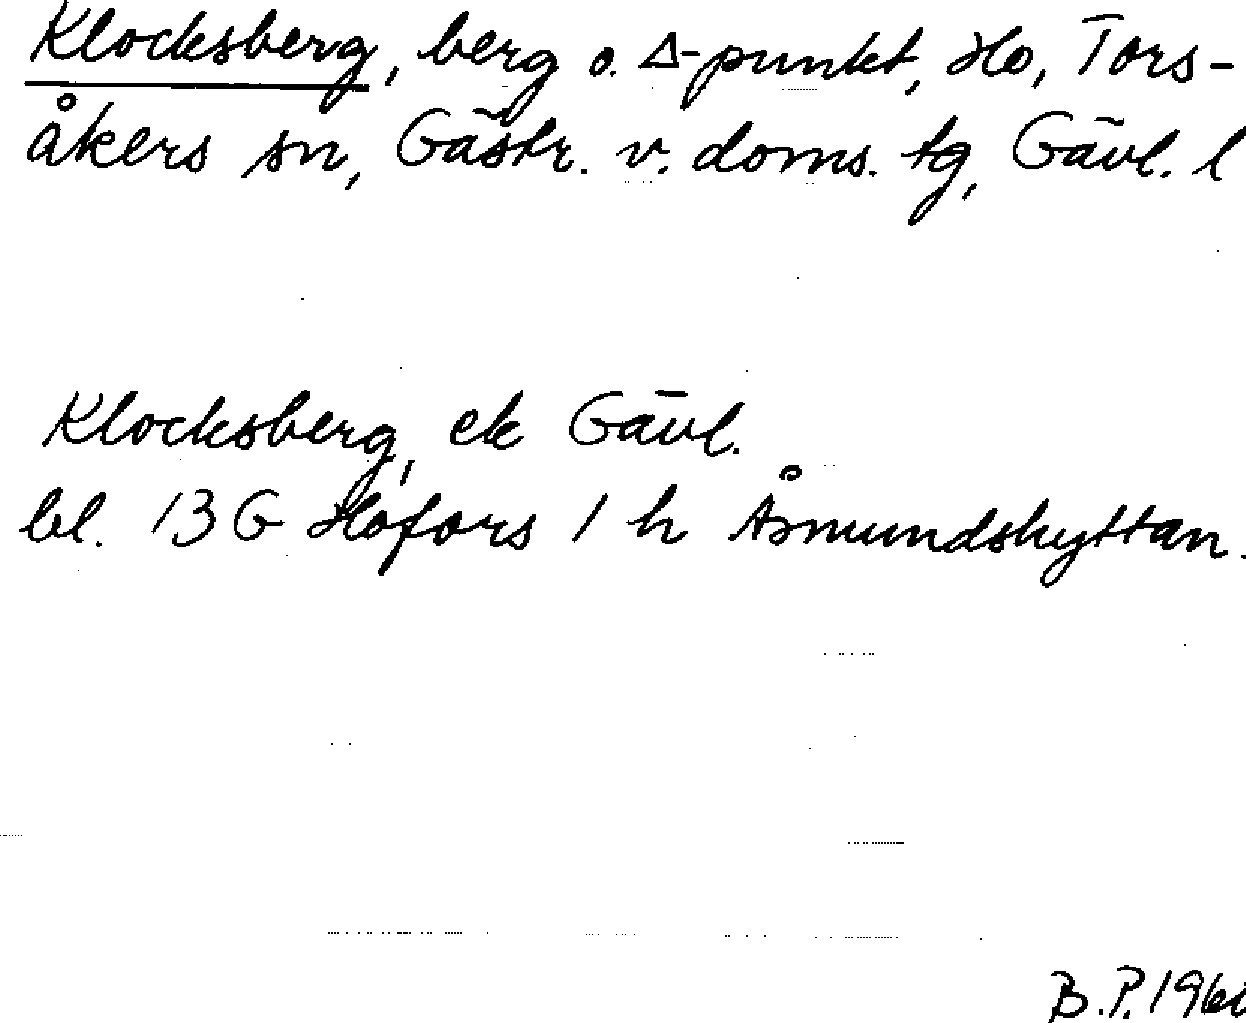 Klocksberg, berg o. Δ-punkt, Ho, Tors-
åkers sn, Gästr. v. doms. tg, Gävl. l
Klocksberg, ek Gävl.
bl. 13 G Hofors 1 h Åsmundshyttan.
B.P. 196